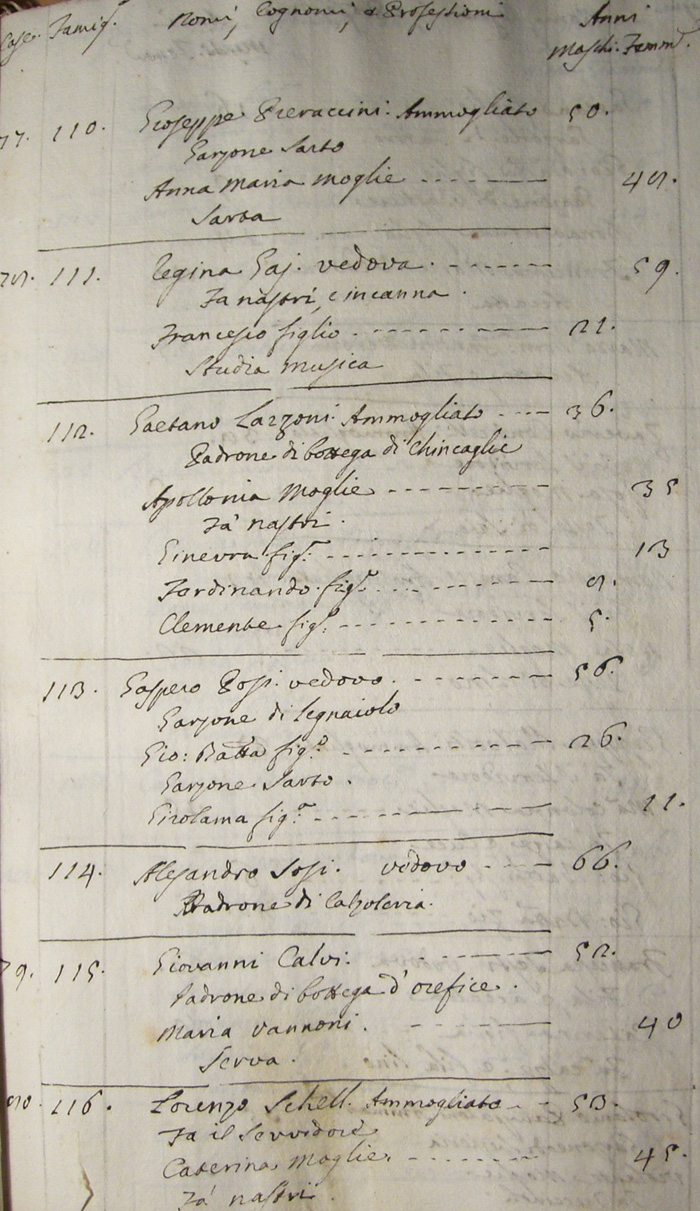 Case. Famig.e Nomi, Cognomi, e Professioni Anni
Maschi. Femm.e
77. 110. Gioseppe Pieraccini. Ammogliato 50.
Garzone Sarto
Anna Maria Moglie 48.
Sarta
78. 111. Regina Gaj. vedova. 59.
Fa nastri, e incanna.
Francesco figlio 21.
Studia Musica
112. Gaetano Lazzoni. Ammogliato 36.
Padrone di bottega di Chincaglie
Apollonia Moglie 35
Fa' nastri.
Ginevra fig.a 13
Ferdinando fig.o 8.
Clemente fig.o 5.
113. Gaspero Possi. vedovo. 56.
Garzone di Legnaiolo
Gio: Batta fig.o 26.
Garzone Sarto.
Girolama fig.a 11.
114. Alesandro Sossi. vedovo 66.
Padrone di Calzoleria.
79. 115. Giovanni Calvi. 52.
Padrone di bottega d'orefice.
Maria Vannoni. 40
Serva.
80. 116. Lorenzo Schell. Ammogliato 53.
Fa il Servidore
Caterina Moglie. 45.
Fa' nastri.